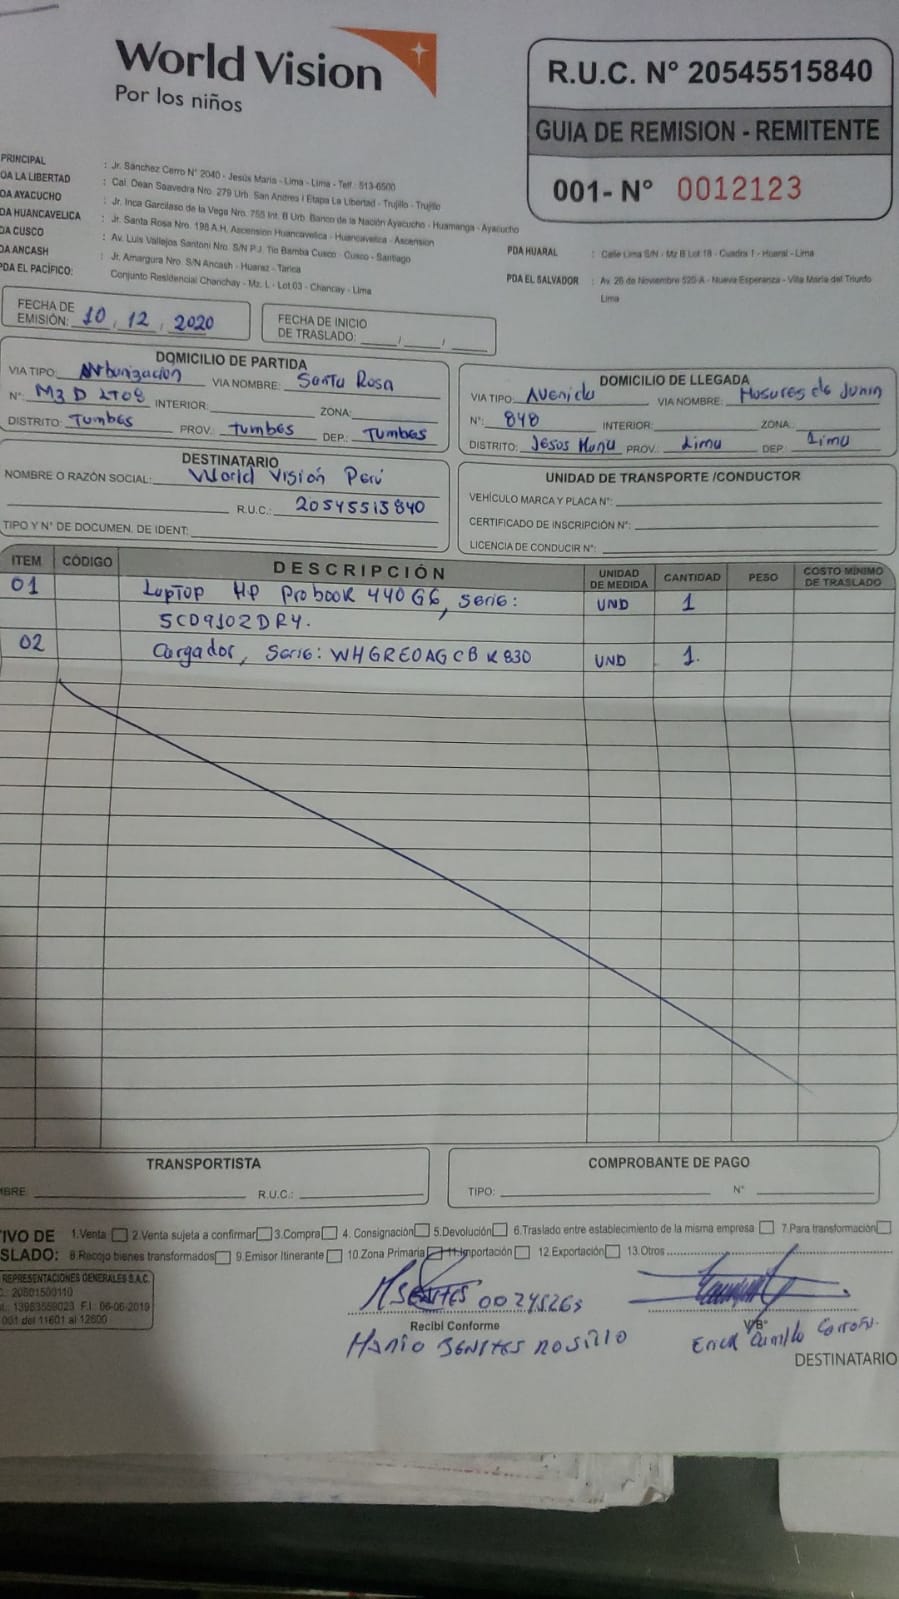 World Vision
Por los niños
R.U.C. N° 20545515840
GUIA DE REMISION - REMITENTE
001- N° 0012123
PRINCIPAL : Jr. Sánchez Cerro N° 2040 - Jesús María - Lima - Lima - Telf.: 513-6500
DA LA LIBERTAD : Cal. Dean Saavedra Nro. 279 Urb. San Andres I Etapa La Libertad - Trujillo - Trujillo
DA AYACUCHO : Jr. Inca Garcilaso de la Vega Nro. 755 Int. B Urb. Banco de la Nación Ayacucho - Huamanga - Ayacucho
DA HUANCAVELICA : Jr. Santa Rosa Nro. 198 A.H. Ascension Huancavelica - Huancavelica - Ascension
DA CUSCO : Av. Luis Vallejos Santoni Nro. S/N P.J. Tio Bamba Cusco - Cusco - Santiago
DA ANCASH : Jr. Amargura Nro. S/N Ancash - Huaraz - Tarica
PDA EL PACÍFICO: Conjunto Residencial Chanchay - Mz. L - Lot.03 - Chancay - Lima
PDA HUARAL : Calle Lima S/N - Mz B Lot 18 - Cuadra 1 - Huaral - Lima
PDA EL SALVADOR : Av. 26 de Noviembre 520-A - Nueva Esperanza - Villa María del Triunfo
Lima
FECHA DE
EMISIÓN: 10 , 12 , 2020
FECHA DE INICIO
DE TRASLADO: / /
DOMICILIO DE PARTIDA
VIA TIPO: Urbanización VIA NOMBRE: Santa Rosa
N°: Mz D LT08 INTERIOR: ZONA:
DISTRITO: Tumbes PROV.: tumbes DEP.: Tumbes
DOMICILIO DE LLEGADA
VIA TIPO: Avenida VIA NOMBRE: Husares de Junin
N°: 848 INTERIOR: ZONA:
DISTRITO: Jesus Maria PROV.: Lima DEP.: Lima
DESTINATARIO
NOMBRE O RAZÓN SOCIAL: World Visión Perú
R.U.C.: 20545515840
TIPO Y N° DE DOCUMEN. DE IDENT:
UNIDAD DE TRANSPORTE /CONDUCTOR
VEHÍCULO MARCA Y PLACA N°:
CERTIFICADO DE INSCRIPCIÓN N°:
LICENCIA DE CONDUCIR N°:
ITEM CÓDIGO DESCRIPCIÓN UNIDAD DE MEDIDA CANTIDAD PESO COSTO MÍNIMO DE TRASLADO
01 Laptop HP Probook 440 G6, Serie: UND 1
5CD9102DRY.
02 Cargador, Serie: WHGREOAGCBK830 UND 1.
TRANSPORTISTA
MBRE R.U.C.:
COMPROBANTE DE PAGO
TIPO: N°
TIVO DE 1.Venta 2.Venta sujeta a confirmar 3.Compra 4. Consignación 5.Devolución 6.Traslado entre establecimiento de la misma empresa 7.Para transformación
SLADO: 8.Recojo bienes transformados 9.Emisor Itinerante 10.Zona Primaria 11.Importación 12.Exportación 13.Otros
REPRESENTACIONES GENERALES S.A.C.
F.I.: 06-06-2019
001 del 11601 al 12600
BENITES 00245263
Recibí Conforme
Mario BENITES ROSILLO
V°B°
Erick
DESTINATARIO